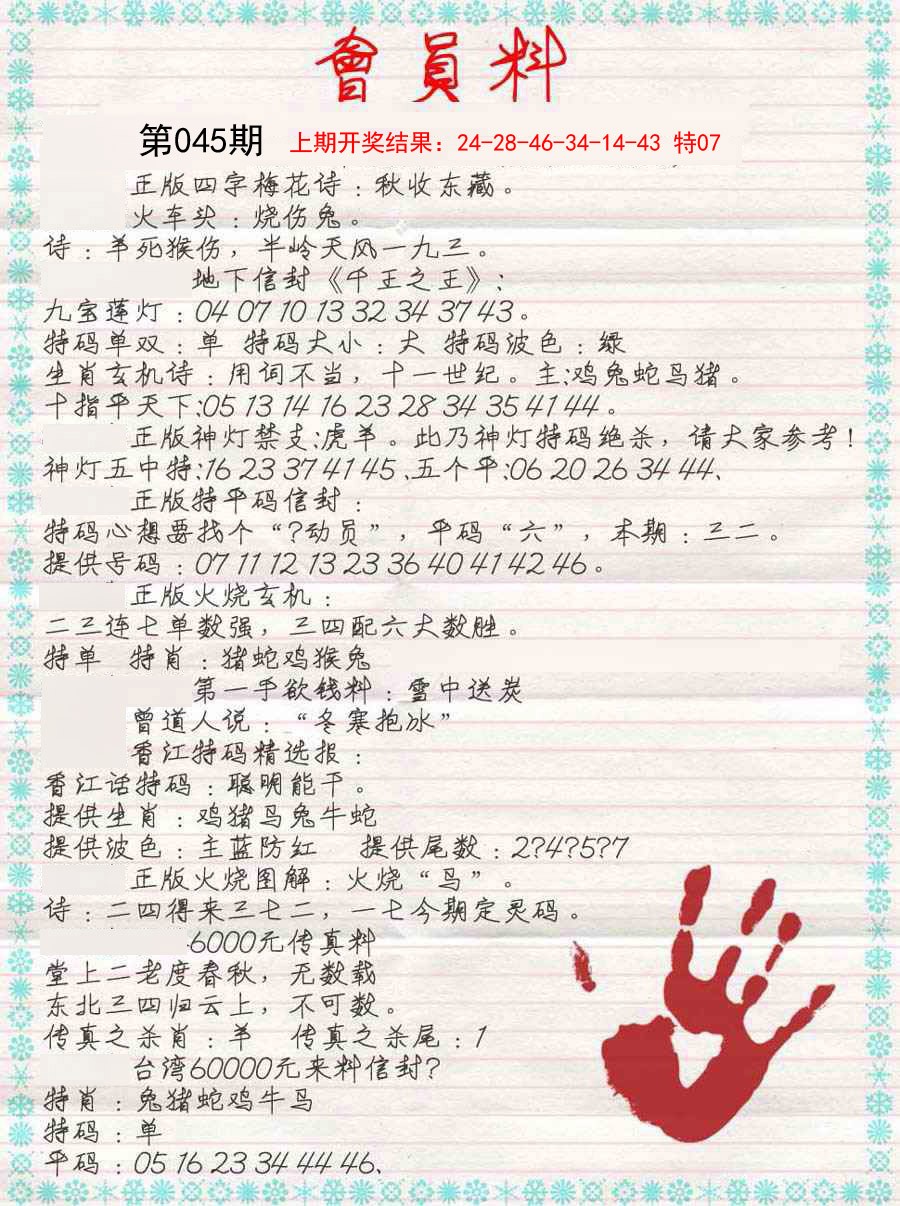 會員料
第045期 上期开奖结果：24-28-46-34-14-43 特07
正版四字梅花诗：秋收东藏。
火车头：烧伤兔。
诗：羊死猴伤，半岭天风一九三。
地下信封《千王之王》：
九宝莲灯：04 07 10 13 32 34 37 43。
特码单双：单 特码大小：大 特码波色：绿
生肖玄机诗：用词不当，十一世纪。主:鸡兔蛇马猪。
十指平天下:05 13 14 16 23 28 34 35 41 44。
正版神灯禁支:虎羊。此乃神灯特码绝杀，请大家参考！
神灯五中特:16 23 37 41 45、五个平:06 20 26 34 44、
正版特平码信封：
特码心想要找个“?动员”，平码“六”，本期：三二。
提供号码：07 11 12 13 23 36 40 41 42 46。
正版火烧玄机：
二三连七单数强，三四配六大数胜。
特单 特肖：猪蛇鸡猴兔
第一手欲钱料：雪中送炭
曾道人说：“冬寒抱冰”
香江特码精选报：
香江话特码：聪明能干。
提供生肖：鸡猪马兔牛蛇
提供波色：主蓝防红 提供尾数：2?4?5?7
正版火烧图解：火烧“鸟”。
诗：二四得来三七二，一七今期定灵码。
6000元传真料
堂上二老度春秋，无数载
东北三四归云上，不可数。
传真之杀肖：羊 传真之杀尾：1
台湾60000元来料信封?
特肖：兔猪蛇鸡牛马
特码：单
平码：05 16 23 34 44 46、